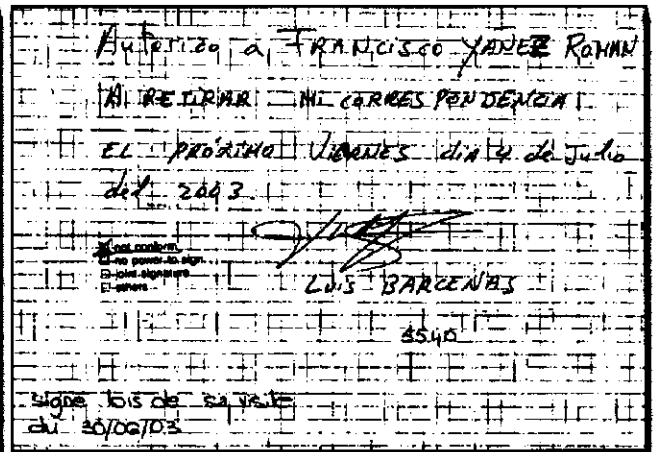 Autorizo a FRANCISCO YANEZ ROMAN
A RETIRAR MI CORRESPONDENCIA
EL PRÓXIMO VIERNES dia 4 de Julio
del 2003.
not conform
no power to sign
joint signature
others
LUIS BARCENAS
5540
signé lors de sa visite
du 30/06/03